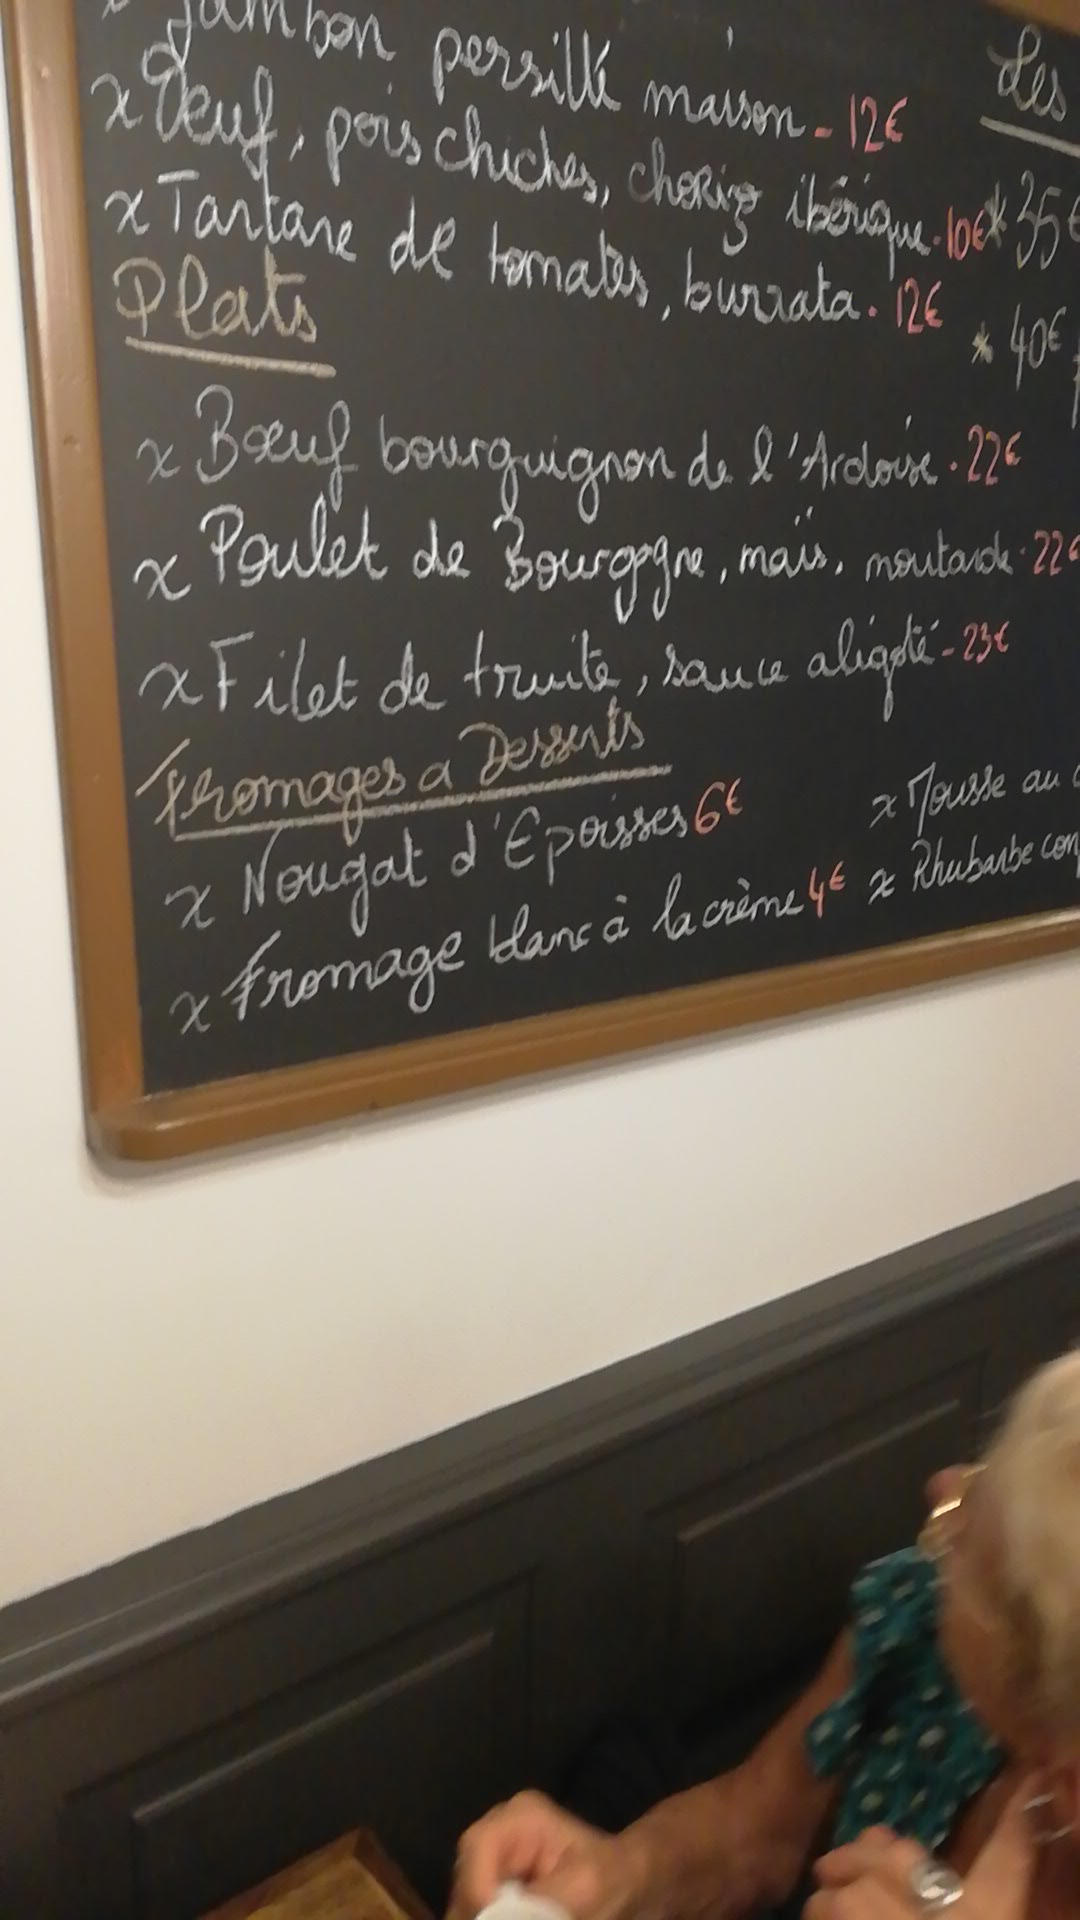 x Jambon persillé maison - 12€
x Oeuf, pois chiches, chorizo ibérique. 10€
x Tartare de tomates, burrata. 12€
Plats
x Bœuf bourguignon de l'Ardoise. 22€
x Poulet de Bourgogne, maïs, moutarde. 22€
x Filet de truite, sauce aligoté - 23€
Fromages & Desserts
x Nougat d'Epoisses 6€
x Fromage blanc à la crème 4€
Les
* 35€
* 40€
x Mousse au
x Rhubarbe